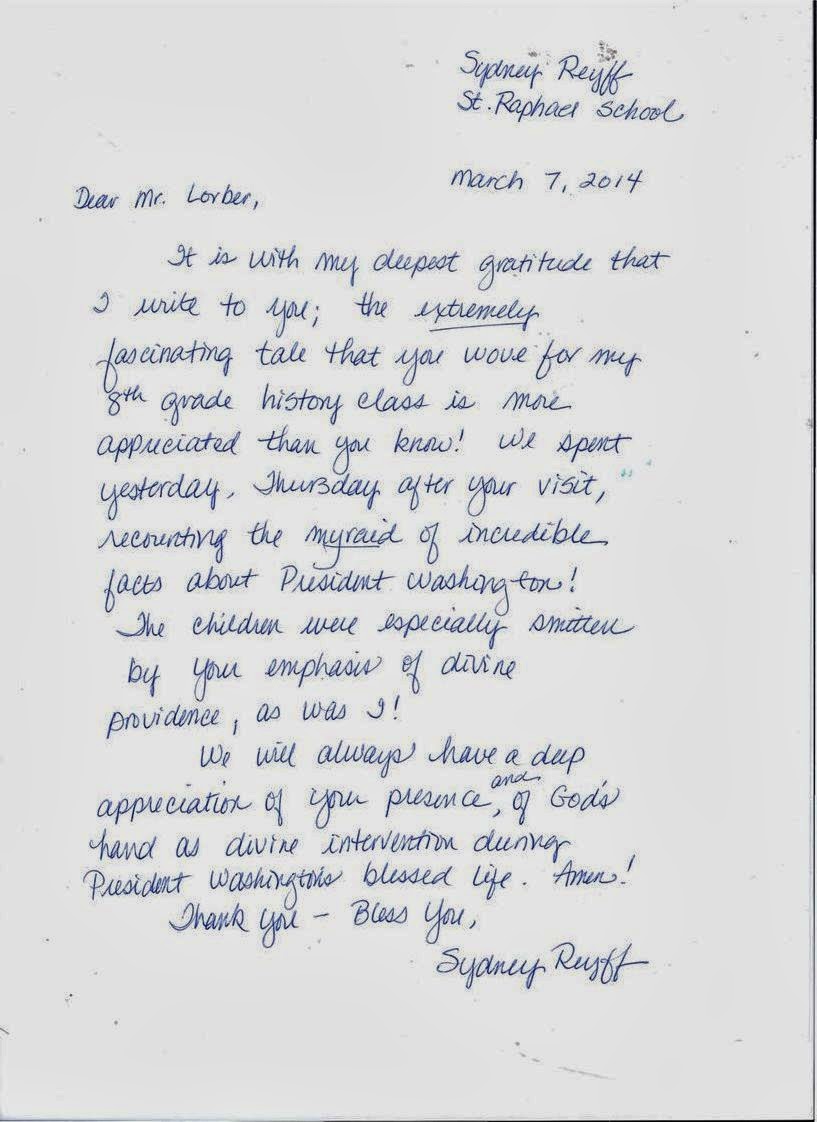 Sydney Reyff
St. Raphael School
March 7, 2014
Dear Mr. Lorber,
It is with my deepest gratitude that
I write to you; the extremely
fascinating tale that you wove for my
8th grade history class is more
appreciated than you know! We spent
yesterday, Thursday after your visit,
recounting the myraid of incredible
facts about President Washington!
The children were especially smitten
by your emphasis of divine
providence, as was I!
We will always have a deep
appreciation of your presence, and of God's
hand as divine intervention during
President Washington's blessed life. Amen!
Thank you – Bless You,
Sydney Reyff